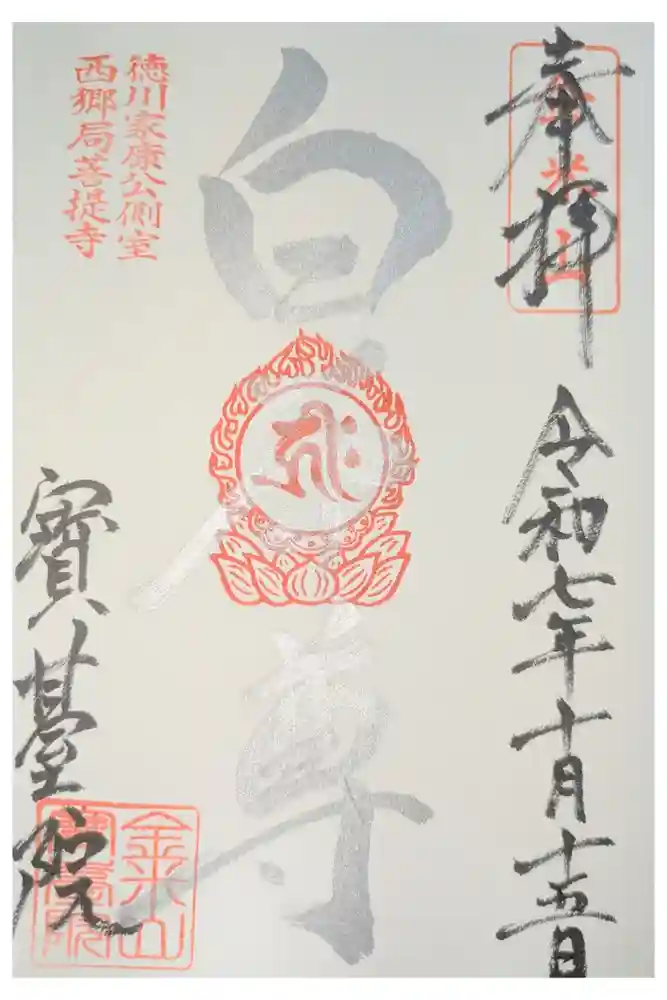 奉拝
令和七年十月十五日
白本尊
徳川家康公側室
西郷局菩提寺
寶臺院
金米山
寶臺院